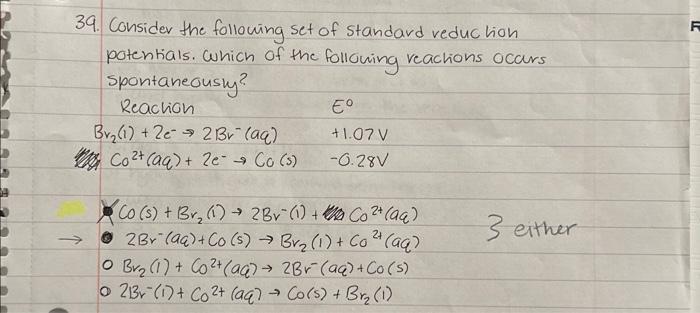 39. Consider the following set of standard reduction
potentials. Which of the following reactions occurs
spontaneously?
Reaction E°
Br₂(l) + 2e⁻ → 2Br⁻(aq) +1.07V
Co²⁺(aq) + 2e⁻ → Co(s) -0.28V
Co(s) + Br₂(l) → 2Br⁻(l) + Co²⁺(aq)
→ 2Br⁻(aq) + Co(s) → Br₂(l) + Co²⁺(aq) 3 either
Br₂(l) + Co²⁺(aq) → 2Br⁻(aq) + Co(s)
2Br⁻(l) + Co²⁺(aq) → Co(s) + Br₂(l)